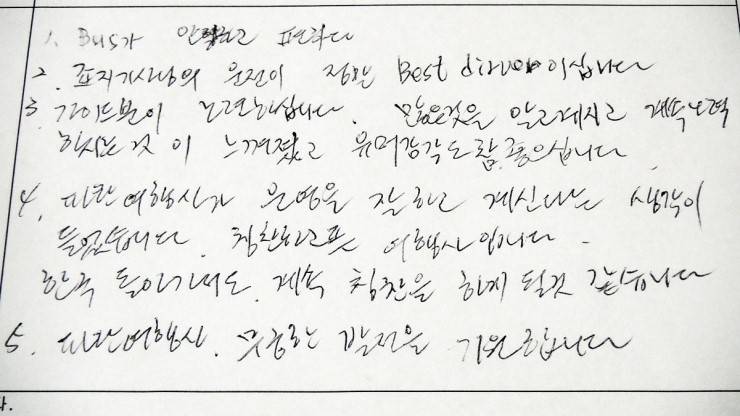 1. Bus가 안락하고 편하다
2. 표지기사님의 운전이 정말 Best driver이십니다
3. 가이드분이 노련하십니다. 많은것을 알고계시고 계속노력
하시는것이 느껴졌고 유머감각도 참 좋으십니다.
4. 파란여행사가 운영을 잘하고 계신다는 생각이
들었습니다. 칭찬하고픈 여행사입니다.
한국 돌아가서도 계속 칭찬을 하게 될것 같습니다
5. 파란여행사. 무궁한 발전을 기원합니다
다.